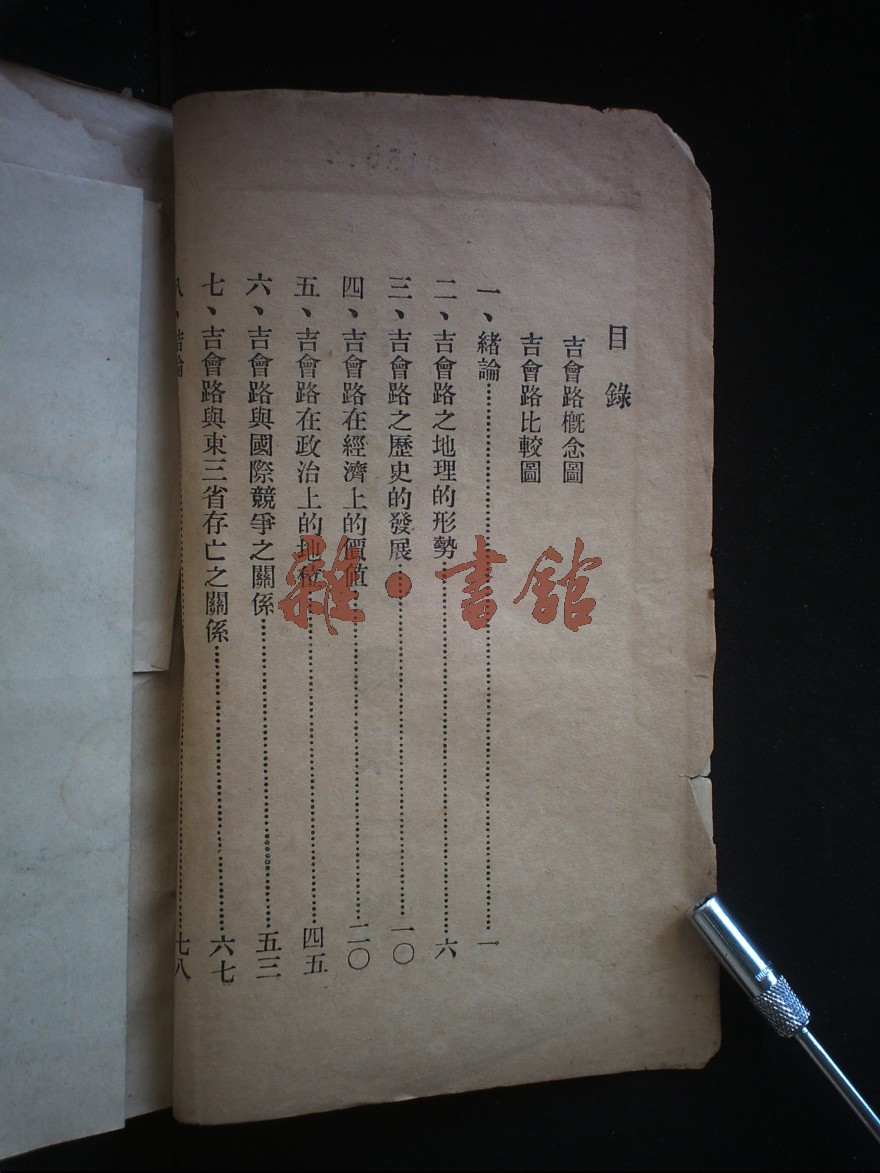 目錄
吉會路概念圖
吉會路比較圖
一、緒論……一
二、吉會路之地理的形勢……六
三、吉會路之歷史的發展……一〇
四、吉會路在經濟上的價值……二〇
五、吉會路在政治上的地位……四五
六、吉會路與國際競爭之關係……五三
七、吉會路與東三省存亡之關係……六七
八、結論……七八
雜·書館